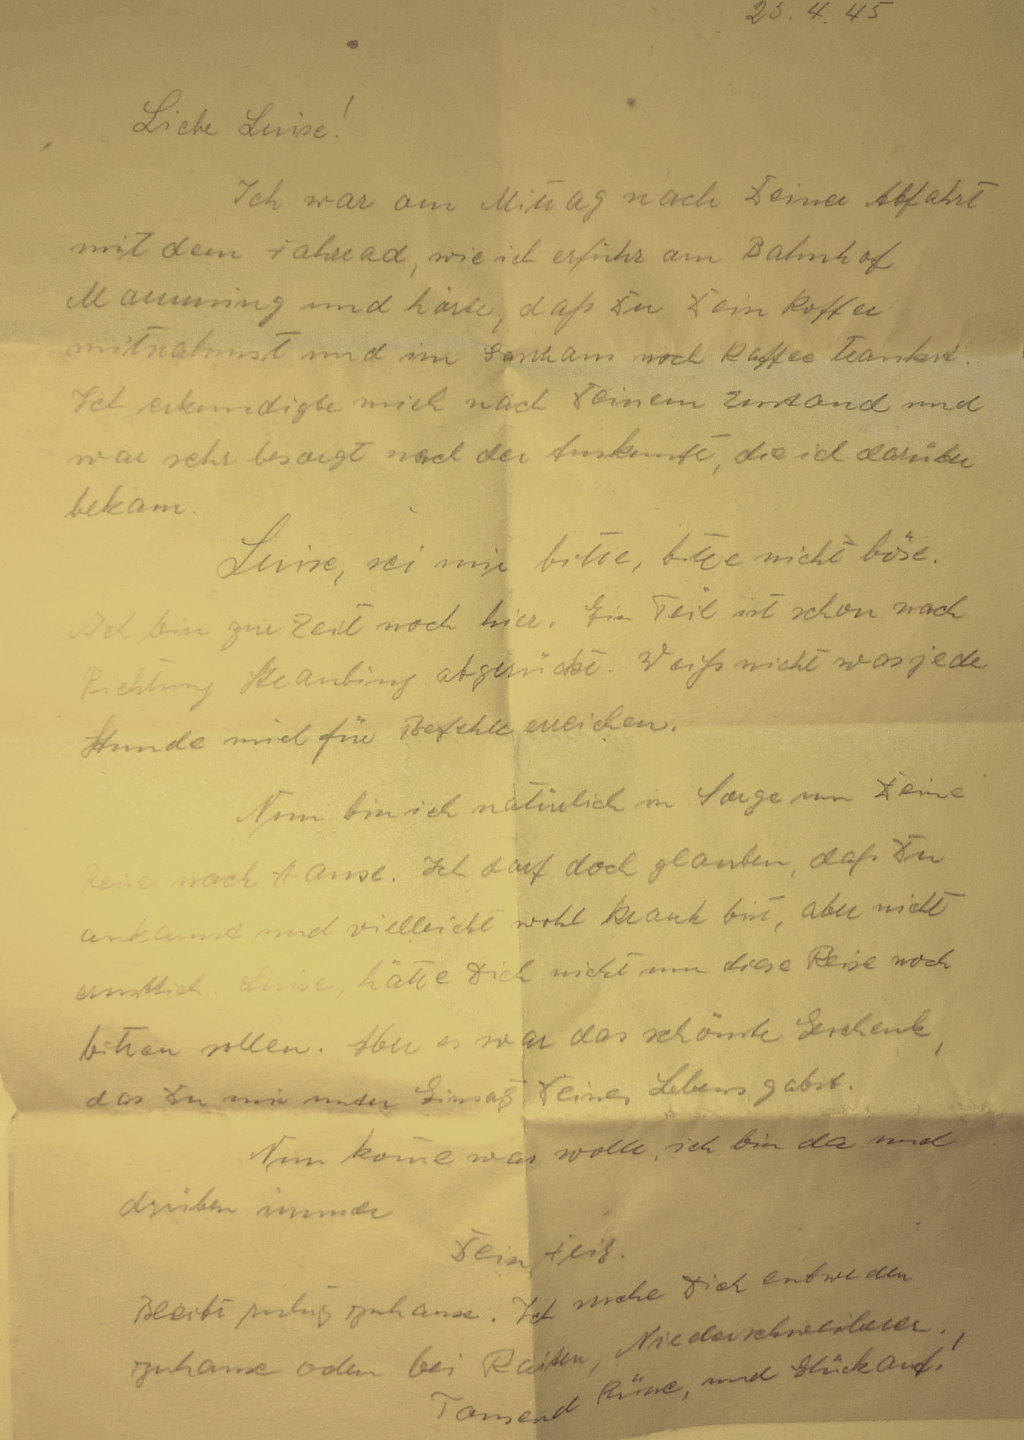 25. 4. 45
Liebe Luise!
Ich war am Mittag nach Deiner Abfahrt
mit dem Fahrrad, wie ich erfuhr am Bahnhof
Mamming und hörte, daß Du Dein Koffer
mitnahmst und im noch Kaffee trankst.
Ich erkundigte mich nach Deinem Zustand und
war sehr besorgt nach der Auskunft, die ich darüber
bekam.
Luise, sei mir bitte, bitte nicht böse.
Ich bin zur Zeit noch hier. Ein Teil ist schon nach
Richtung Straubing abgerückt. Weiß nicht was jede
Stunde mich für Befehle erreichen.
Nun bin ich natürlich in Sorge um Deine
Reise nach Hause. Ich darf doch glauben, daß Du
ankamst und vielleicht wohl krank bist, aber nicht
ernstlich. Luise, hätte Dich nicht um diese Reise noch
bitten sollen. Aber es war das schönste Geschenk,
das Du mir unter Einsatz Deines Lebens gabst.
Nun kom̄e was wolle, ich bin da und
drüben immer
Dein Fritz.
Bleibt ruhig zuhause. Ich suche Dich entweder
zuhause oder bei
Tausend Küsse, und Glückauf!